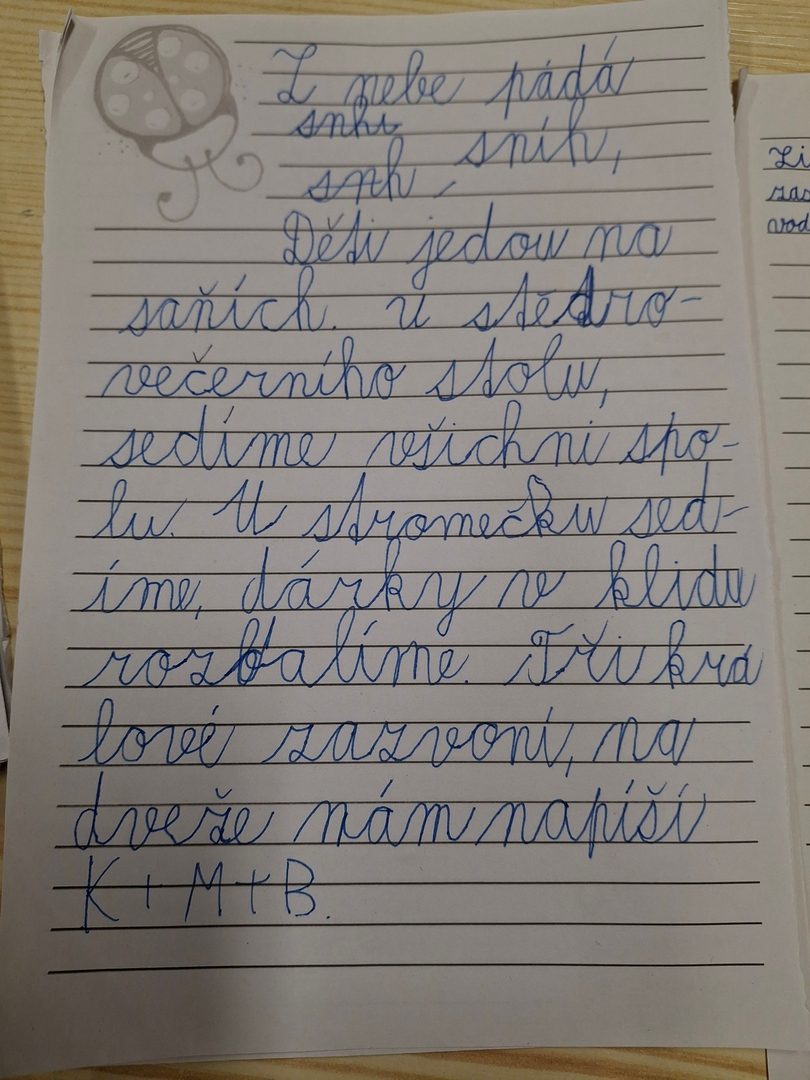 Z nebe pádá
snhi
sníh,
snh,
Děti jedou na
saňích. u stědro-
večerního stolu,
sedíme všichni spo-
lu. U stromečku sed-
íme, dárky v klidu
rozbalíme. Tři krá
lové zazvoní, na
dveže nám napíší
K+M+B.
Li
zas
vod